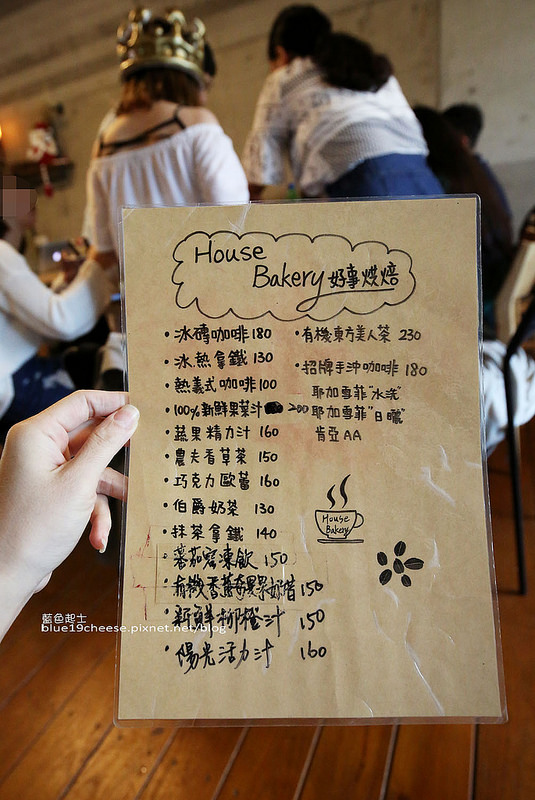 House
Bakery 好事烘焙
•冰磚咖啡180
•冰.熱拿鐵130
•熱義式咖啡100
•100%新鮮果菜汁 200
•蔬果精力汁 160
•農夫看草茶 150
•巧克力歐蕾 160
•伯爵奶茶 130
•抹茶拿鐵 140
•蕃茄蜜凍飲 150
•有機香蕉 奶昔150
•新鮮柳橙汁 150
•陽光活力汁 160
•有機東方美人茶 230
•招牌手沖咖啡 180
耶加雪菲"水洗"
耶加雪菲"日曬"
肯亞AA
House
Bakery
藍色起士
blue19cheese.pixnet.net/blog